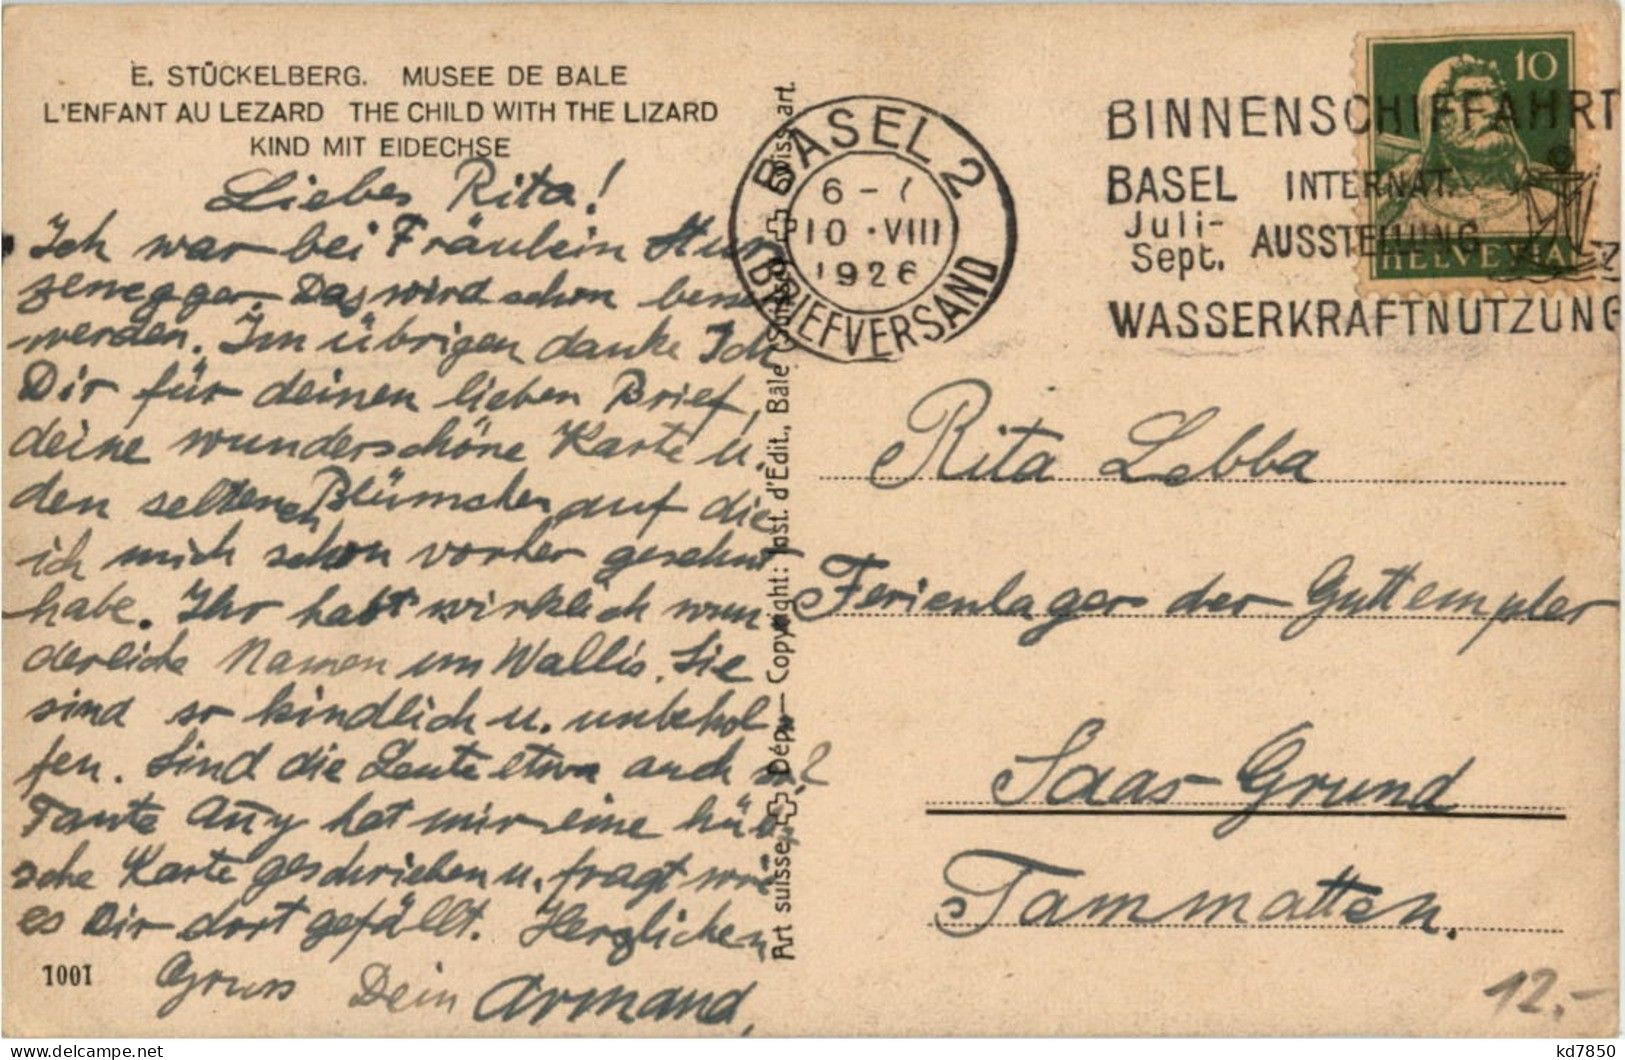 E. STÜCKELBERG. MUSEE DE BALE
L'ENFANT AU LEZARD THE CHILD WITH THE LIZARD
KIND MIT EIDECHSE
Liebes Rita!
Ich war bei Fräulein Stur
zenegger. Das wird schon besser
werden. Im übrigen danke Ich
Dir für deinen lieben Brief,
deine wunderschöne Karte u.
den seltenen Blümchen auf die
ich mich schon vorher gesehnt
habe. Ihr habt wirklich wun
derliche Namen im Wallis. Sie
sind so kindlich u. unbehol
fen. Sind die Leute etwa auch so?
Tante Anny hat mir eine hüb
sche Karte geschrieben u. fragt wie
es Dir dort gefällt. Herzlichen
Gruss Dein Armand.
1001
Art suisse, Dépt. Copyright: Inst. d'Édit., Bâle (Suisse) Swiss art.
BASEL 2
6-7
10·VIII
1926
BRIEFVERSAND
BINNENSCHIFFAHRT
BASEL INTERNAT.
Juli-
Sept. AUSSTELLUNG
WASSERKRAFTNUTZUNG
10
HELVETIA
Rita Lebba
Ferienlager der Guttempler
Saas-Grund
Tammatten.
12.-
oldthing.de
kd7850